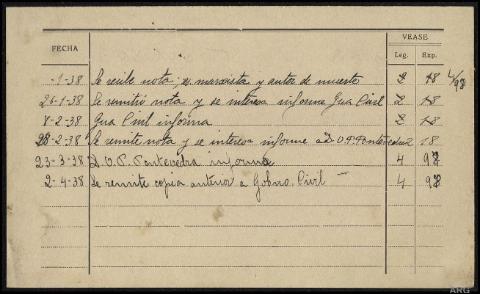 VEASE
FECHA Leg. Exp.
-1-38 Se recibe nota; es marxista y autor de muerte 2 18 4/97
26-1-38 Se remitió nota y se interesa informe Gua Civil 2 18
8-2-38 Gua Civil informa 2 18
28-2-38 Se remite nota y se interesa informe a D.O.P. Pontevedra 2 18
23-3-38 D.O.P. Pontevedra informa 4 97
2-4-38 Se remite copia anterior a Gobno. Civil — 4 97
ARG